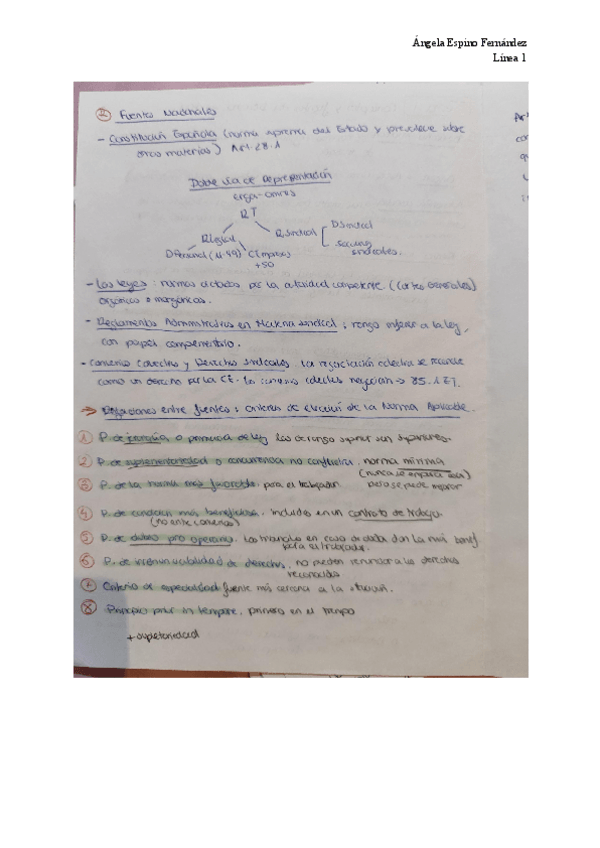 Ángela Espino Fernández
Línea 1
② Fuentes Nacionales
- Constitución Española (norma suprema del Estado y prevalece sobre
otras materias) Art. 28.1
Doble vía de Representación
erga-omnes
RT
R legal
R. Sindical
D. Sindical
Secciones
sindicales.
D Personal (11-49)
C. Empresa
+50
- Las leyes: normas dictadas por la autoridad competente (Cortes Generales)
orgánicas o inorgánicas.
- Reglamentos Administrativos en Materia sindical: rango inferior a la ley,
con papel complementario.
- Convenios Colectivos y Derechos Sindicales. La negociación colectiva se reconoce
como un derecho por la CE. los convenios colectivos negocian → 85.1 ET.
→ Relaciones entre fuentes: criterios de elección de la Norma Aplicable.
① P. de jerarquía o primacía de ley las de rango superior son superiores.
② P. de suplementariedad o concurrencia no conflictiva. norma mínima
(nunca se empeora
pero se puede mejorar
③ P. de la norma más favorable. para el trabajador
④ P. de condición más beneficiosa. incluidos en un contrato de trabajo.
(no ente convenios)
⑤ P. de dubio pro operario. Los tribunales en caso de duda dan la más benef.
para el trabajador.
⑥ P. de irrenunciabilidad de derechos. no pueden renunciar a los derechos
reconocidos
⑦ Criterio de especialidad fuente más cercana a la situación.
⑧ Principio prior in tempore. primero en el tiempo
+ supletoriedad